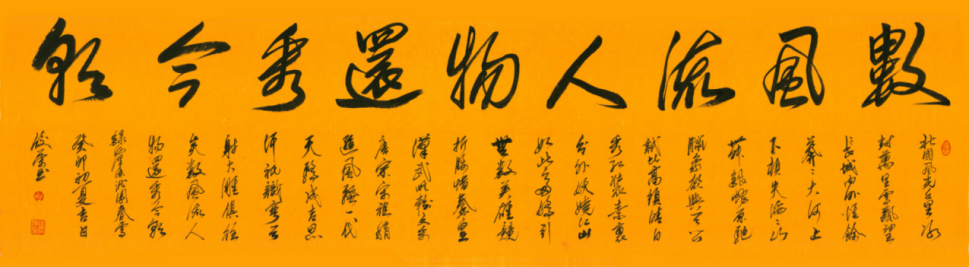 數風流人物還看今朝
北國風光千里冰
封萬里雪飄望
長城内外惟餘
莽莽大河上
下頓失滔滔山
舞銀蛇原馳
蠟象欲與天公
試比高須晴日
看紅裝素裹
分外妖嬈江山
如此多嬌引
無數英雄競
折腰惜秦皇
漢武略輸文采
唐宗宋祖稍
遜風騷一代
天驕成吉思
汗祇識彎弓
射大雕俱往
矣數風流人
物還看今朝
錄沁園春雪
癸卯初夏吉日